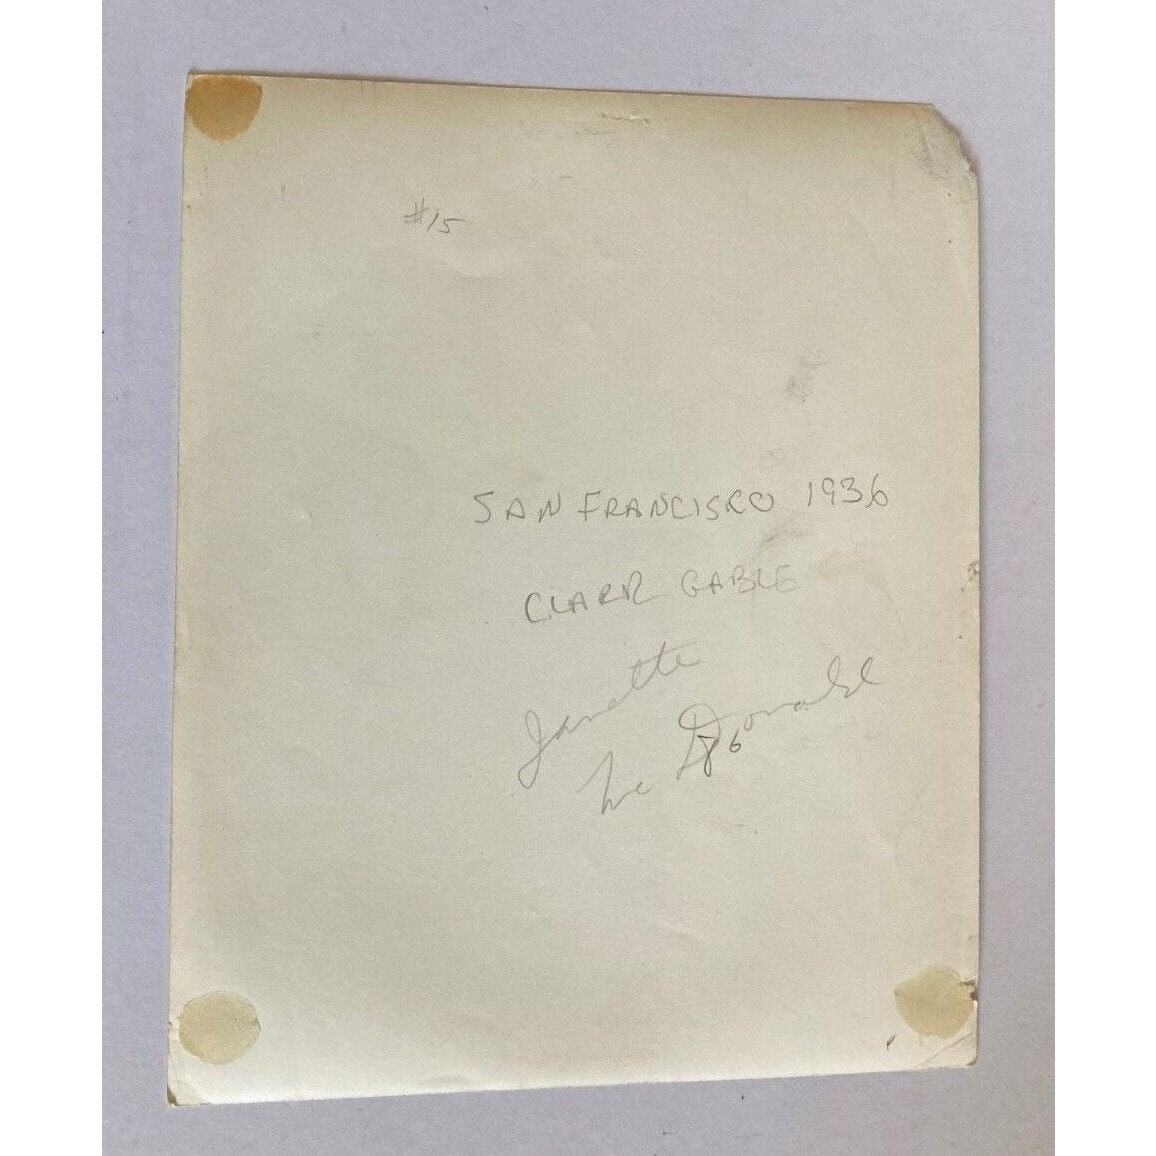 #15
SAN FRANCISCO 1936
CLARK GABLE
Janette
Mc Donald
86